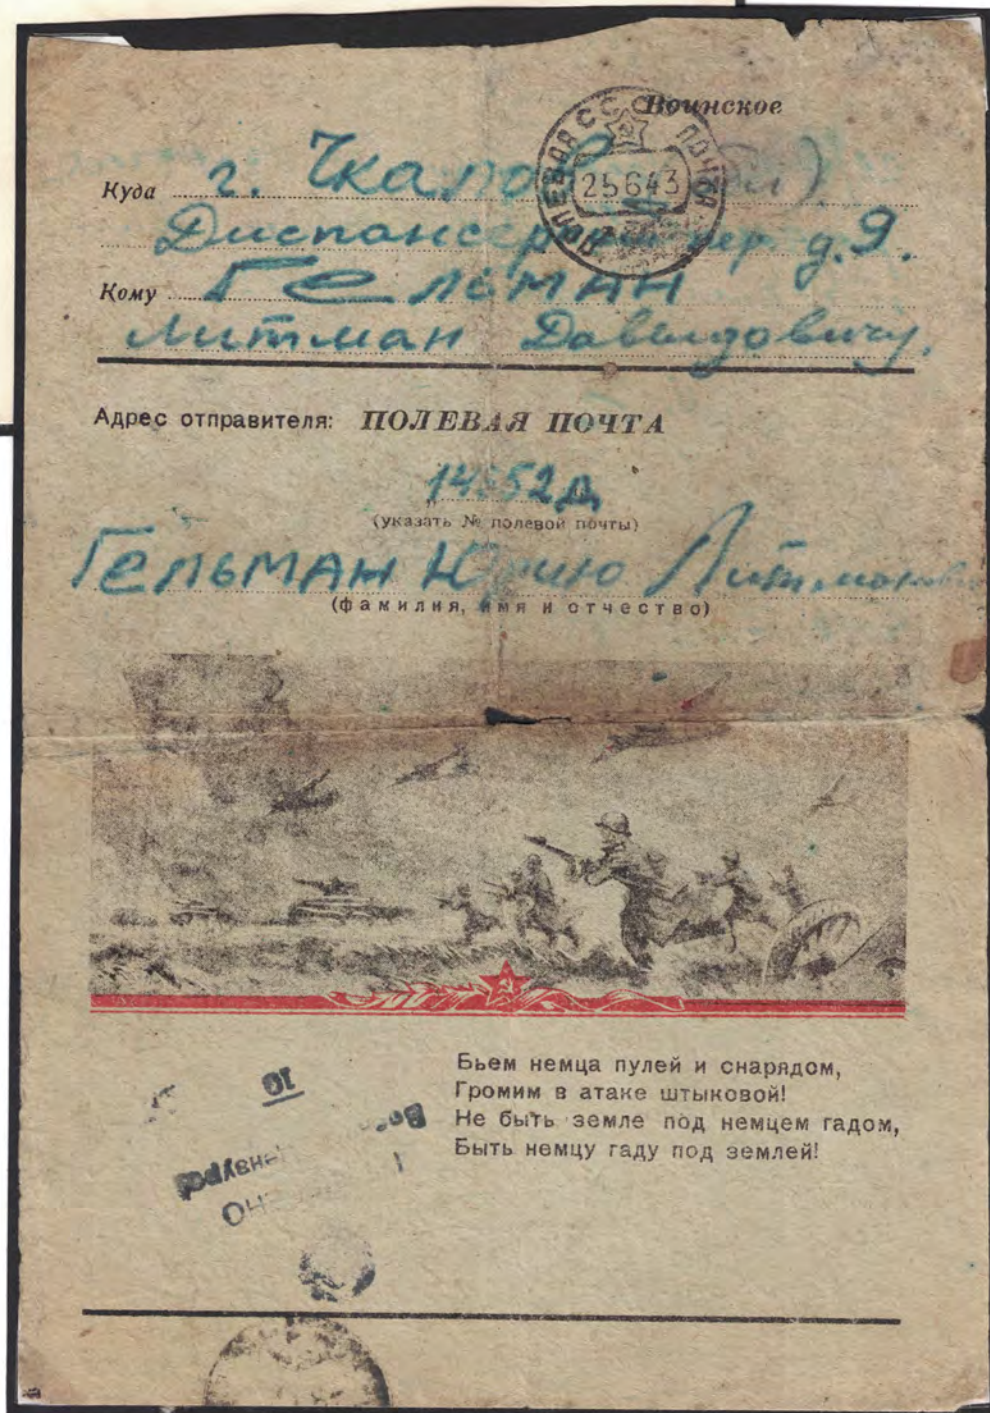 Воинское
ПОЛЕВАЯ ПОЧТА
25 6 43
Куда г. Чкалов
Диспансерный пер д. 9.
Кому Гельман
Литман Давыдовичу.
Адрес отправителя: ПОЛЕВАЯ ПОЧТА
(указать № полевой почты)
Гельман Юрию
(фамилия, имя и отчество)
Бьем немца пулей и снарядом,
Громим в атаке штыковой!
Не быть земле под немцем гадом,
Быть немцу гаду под землей!
10